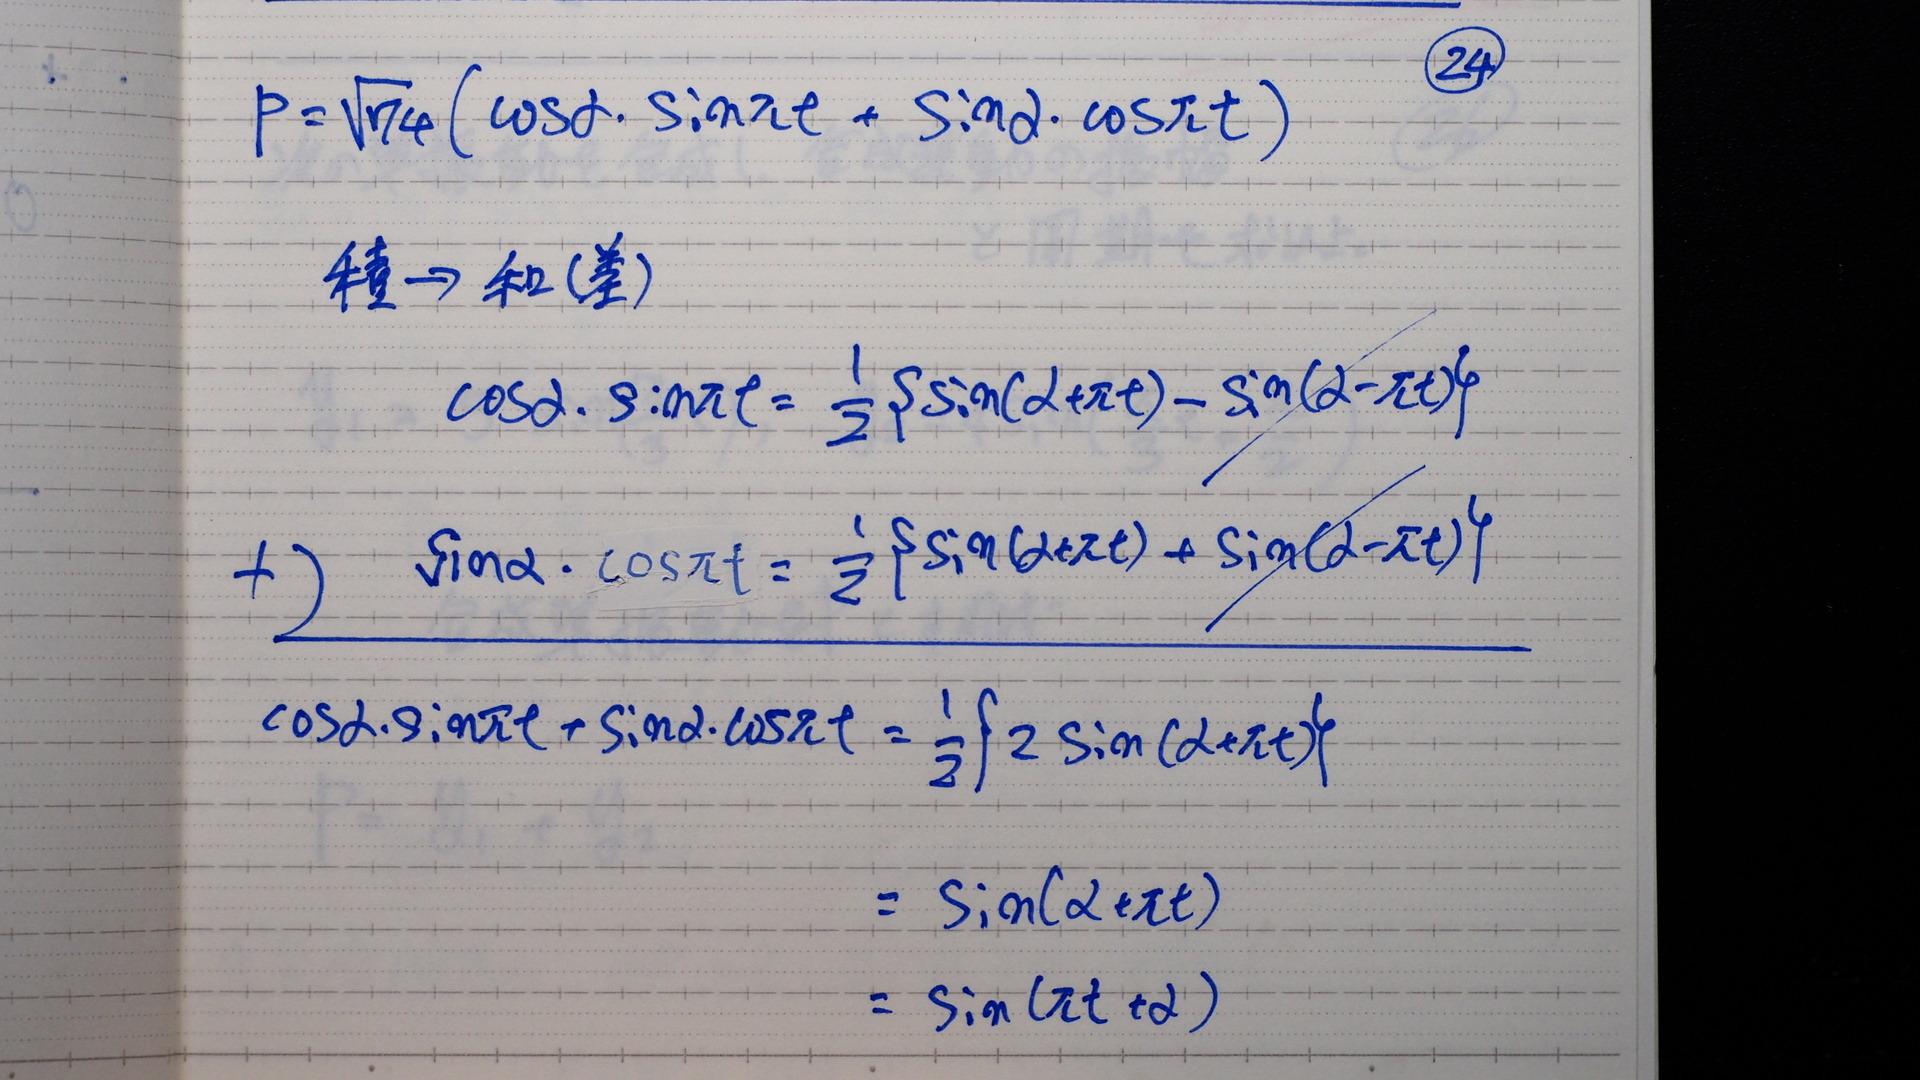 24
P = √74 (cosα・sinπt + sinα・cosπt)
積→和(差)
cosα・sinπt = 1/2{sin(α+πt) - sin(α-πt)}
+) sinα・cosπt = 1/2{sin(α+πt) + sin(α-πt)}
cosα・sinπt + sinα・cosπt = 1/2{2 sin(α+πt)}
= sin(α+πt)
= sin(πt+α)